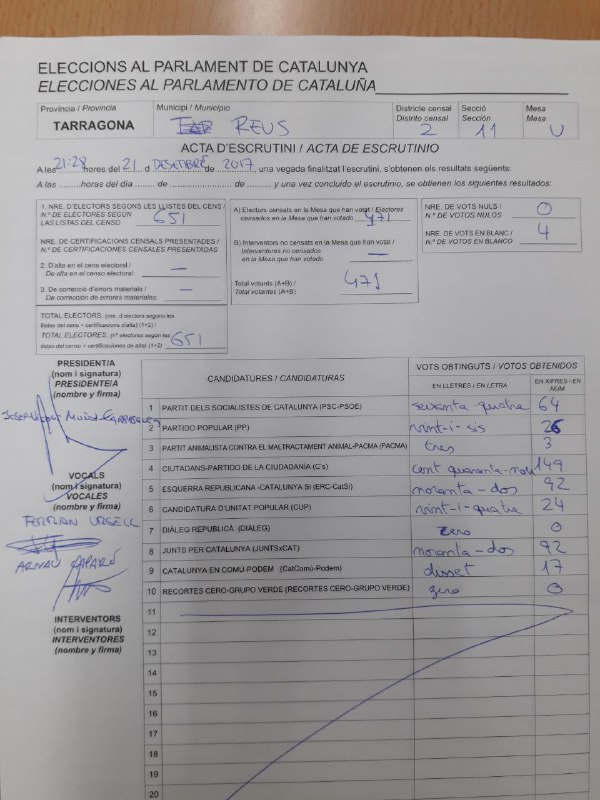 ELECCIONS AL PARLAMENT DE CATALUNYA
ELECCIONES AL PARLAMENTO DE CATALUÑA
Província / Provincia
TARRAGONA
Municipi / Municipio
REUS
Districte censal
Distrito censal
2
Secció
Sección
11
Mesa
Mesa
U
ACTA D'ESCRUTINI / ACTA DE ESCRUTINIO
A les 21:28 hores del 21 d DESEMBRE de 2017, una vegada finalitzat l'escrutini, s'obtenen els resultats següents:
A las ........ horas del día ........ de ........ de ........ y una vez concluido el escrutinio, se obtienen los siguientes resultados:
1. NRE. D'ELECTORS SEGONS LES LLISTES DEL CENS /
N.º DE ELECTORES SEGÚN
LAS LISTAS DEL CENSO
651
NRE. DE CERTIFICACIONS CENSALS PRESENTADES /
N.º DE CERTIFICACIONES CENSALES PRESENTADAS
2. D'alta en el cens electoral /
De alta en el censo electoral:
—
3. De correcció d'errors materials /
De corrección de errores materiales:
—
TOTAL ELECTORS: (nre. d'electors segons les
llistes del cens + certificacions d'alta) (1+2) /
TOTAL ELECTORES: (nº electores según las
listas del censo + certificaciones de alta) (1+2)
651
A) Electors censats en la Mesa que han votat / Electores
censados en la Mesa que han votado
471
B) Interventors no censats en la Mesa que han votat /
Interventores no censados
en la Mesa que han votado
—
Total votants (A+B) /
Total votantes (A+B)
471
NRE. DE VOTS NULS /
N.º DE VOTOS NULOS
0
NRE. DE VOTS EN BLANC /
N.º DE VOTOS EN BLANCO
4
PRESIDENT/A
(nom i signatura)
PRESIDENTE/A
(nombre y firma)
VOCALS
(nom i signatura)
VOCALES
(nombre y firma)
FERRAN URGELL
ARNAU CAPARÓ
INTERVENTORS
(nom i signatura)
INTERVENTORES
(nombre y firma)
CANDIDATURES / CANDIDATURAS
VOTS OBTINGUTS / VOTOS OBTENIDOS
EN LLETRES / EN LETRA
EN XIFRES / EN NÚM
1 PARTIT DELS SOCIALISTES DE CATALUNYA (PSC-PSOE) seixanta-quatre 64
2 PARTIDO POPULAR (PP) vint-i-sis 26
3 PARTIT ANIMALISTA CONTRA EL MALTRACTAMENT ANIMAL-PACMA (PACMA) tres 3
4 CIUTADANS-PARTIDO DE LA CIUDADANÍA (C's) cent quaranta-nou 149
5 ESQUERRA REPUBLICANA -CATALUNYA SÍ (ERC-CatSí) noranta-dos 92
6 CANDIDATURA D'UNITAT POPULAR (CUP) vint-i-quatre 24
7 DIÀLEG REPUBLICÀ (DIÀLEG) zero 0
8 JUNTS PER CATALUNYA (JUNTSxCAT) noranta-dos 92
9 CATALUNYA EN COMÚ-PODEM (CatComú-Podem) disset 17
10 RECORTES CERO-GRUPO VERDE (RECORTES CERO-GRUPO VERDE) zero 0
11
12
13
14
15
16
17
18
19
20